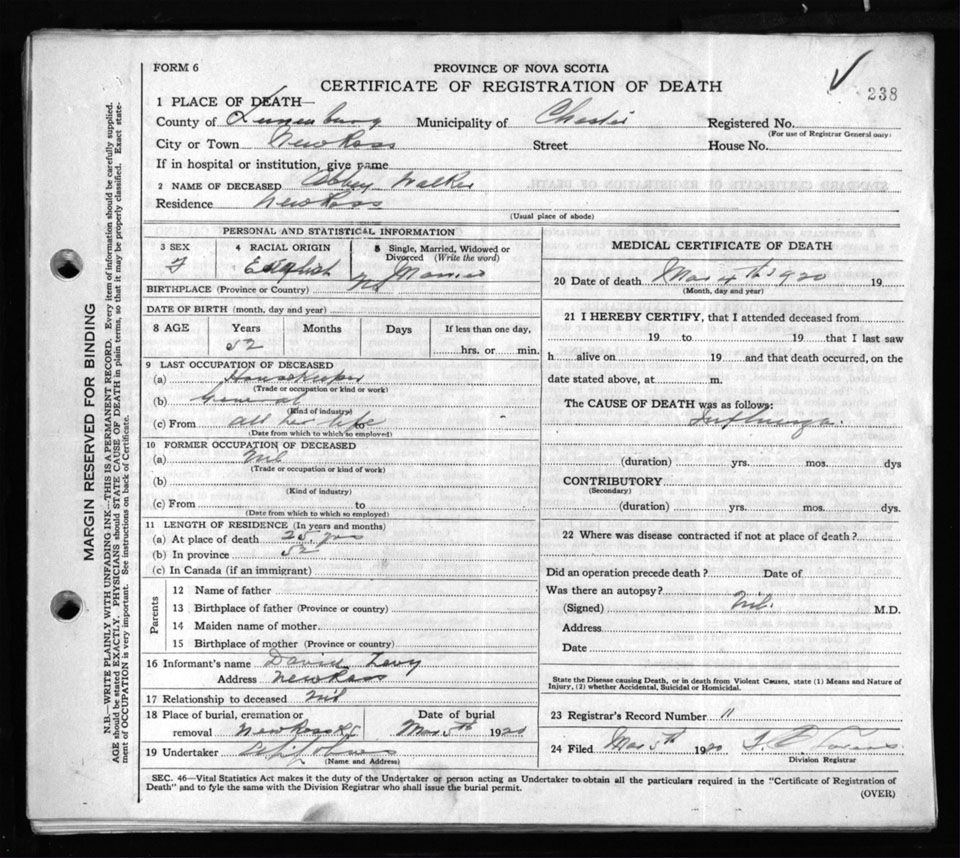 FORM 6
PROVINCE OF NOVA SCOTIA
CERTIFICATE OF REGISTRATION OF DEATH
238
1 PLACE OF DEATH—
County of Lunenburg Municipality of Chester Registered No.
(For use of Registrar General only)
City or Town New Ross Street House No.
If in hospital or institution, give name
2 NAME OF DECEASED Abbey Walker
Residence New Ross
(Usual place of abode)
PERSONAL AND STATISTICAL INFORMATION
3 SEX 4 RACIAL ORIGIN 5 Single, Married, Widowed or Divorced (Write the word)
F English Married
BIRTHPLACE (Province or Country) NS
DATE OF BIRTH (month, day and year)
8 AGE Years Months Days If less than one day,
52 hrs. or min.
9 LAST OCCUPATION OF DECEASED
(a) Housekeeper
(Trade or occupation or kind or work)
(b) General
(Kind of industry)
(c) From all her life to
(Date from which to which so employed)
10 FORMER OCCUPATION OF DECEASED
(a) Nil
(Trade or occupation or kind of work)
(b)
(Kind of industry)
(c) From to
(Date from which to which so employed)
11 LENGTH OF RESIDENCE (In years and months)
(a) At place of death 25 yrs
(b) In province 52
(c) In Canada (if an immigrant)
Parents
12 Name of father
13 Birthplace of father (Province or country)
14 Maiden name of mother
15 Birthplace of mother (Province or country)
16 Informant's name David Levy
Address New Ross
17 Relationship to deceased Nil
18 Place of burial, cremation or removal New Ross Date of burial Mar 5th 1920
19 Undertaker
(Name and Address)
MEDICAL CERTIFICATE OF DEATH
20 Date of death Mar 4th 1920 19
(Month, day and year)
21 I HEREBY CERTIFY, that I attended deceased from
19 to 19 that I last saw
h alive on 19 and that death occurred, on the
date stated above, at m.
The CAUSE OF DEATH was as follows:
Influenza.
(duration) yrs. mos. dys
CONTRIBUTORY
(Secondary)
(duration) yrs. mos. dys.
22 Where was disease contracted if not at place of death?
Did an operation precede death? Date of
Was there an autopsy?
(Signed) Nil. M.D.
Address
Date
State the Disease causing Death, or in death from Violent Causes, state (1) Means and Nature of
Injury, (2) whether Accidental, Suicidal or Homicidal.
23 Registrar's Record Number 11
24 Filed Mar 5th 1920
Division Registrar
SEC. 46—Vital Statistics Act makes it the duty of the Undertaker or person acting as Undertaker to obtain all the particulars required in the "Certificate of Registration of
Death" and to fyle the same with the Division Registrar who shall issue the burial permit.
(OVER)
MARGIN RESERVED FOR BINDING
N.B.—WRITE PLAINLY WITH UNFADING INK—THIS IS A PERMANENT RECORD. Every item of information should be carefully supplied.
AGE should be stated EXACTLY. PHYSICIANS should STATE CAUSE OF DEATH in plain terms, so that it may be properly classified. Exact state-
ment of OCCUPATION is very important. See instructions on back of Certificate.